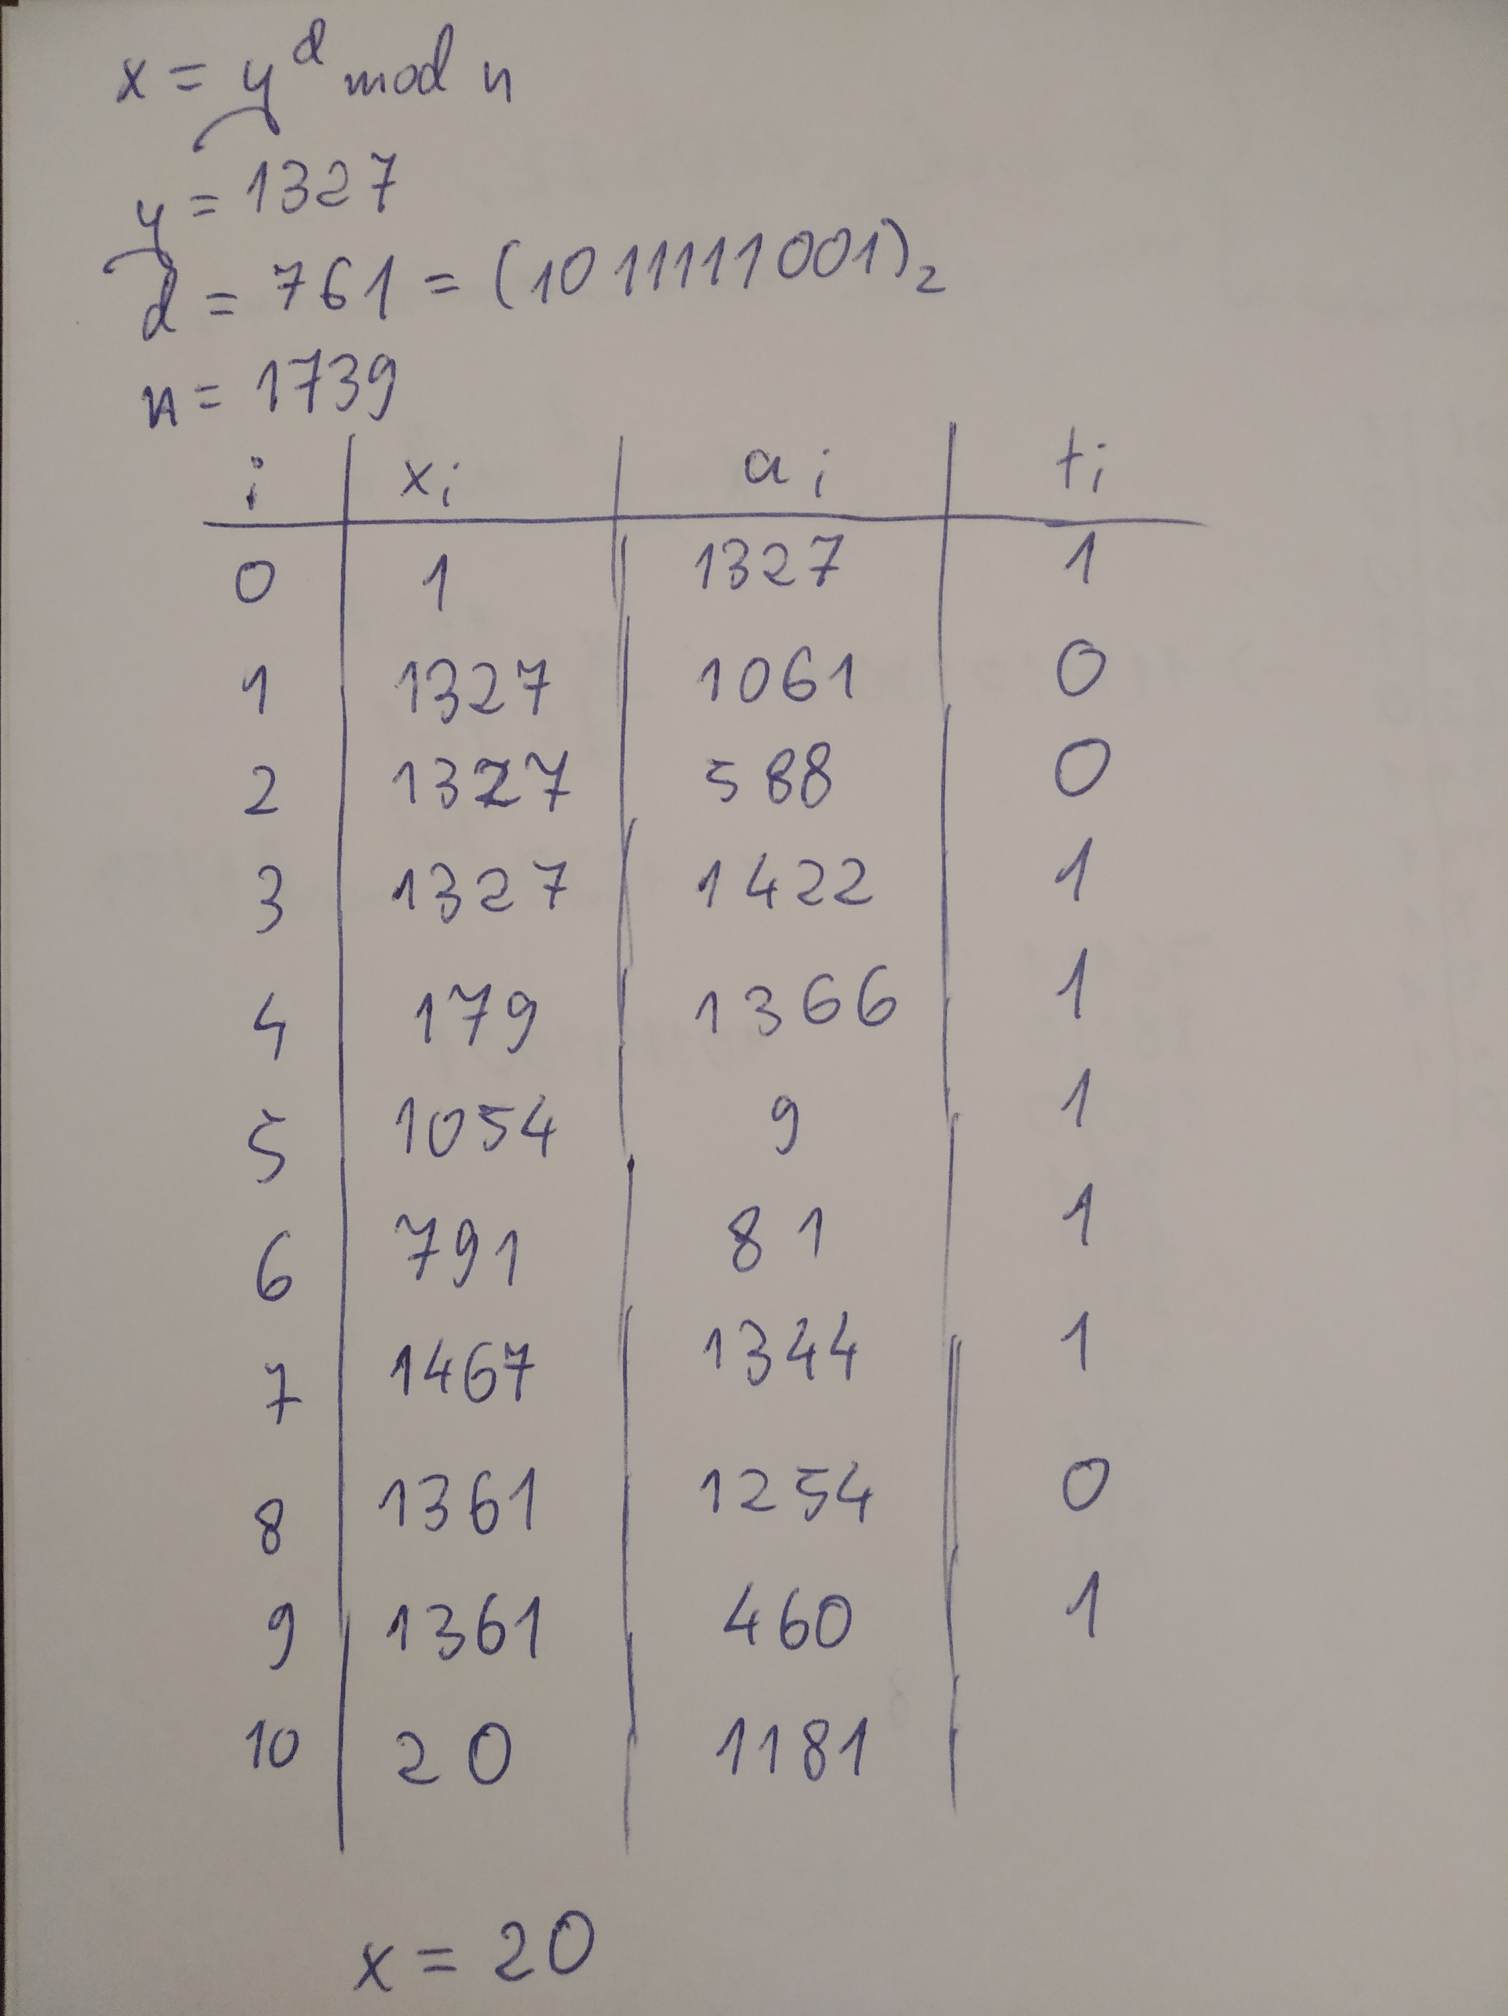 x = y^d mod n
y = 1327
d = 761 = (1011111001)₂
n = 1739
i xi ai ti
0 1 1327 1
1 1327 1061 0
2 1327 588 0
3 1327 1422 1
4 179 1366 1
5 1054 9 1
6 791 81 1
7 1467 1344 1
8 1361 1254 0
9 1361 460 1
10 20 1181
x = 20